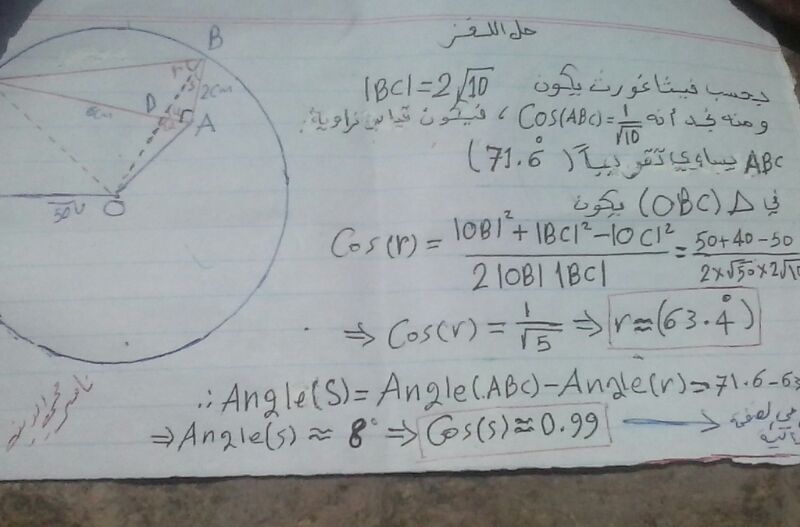 حل اللغز
بحسب فيثاغورث يكون |BC|=2√10
ومنه نجد أنه Cos(ABC)=1/√10 ، فيكون قياس زاوية
ABC يساوي تقريباً (71.6°)
في Δ (OBC) يكون
Cos(r) = |OB|²+|BC|²-|OC|² / 2|OB||BC| = 50+40-50 / 2×√50×2√10
⇒ Cos(r) = 1/√5 ⇒ r≈(63.4°)
∴ Angle(S)= Angle(ABC)-Angle(r)=71.6-63
⇒ Angle(s) ≈ 8° ⇒ Cos(s)≈0.99
B
r
s
2cm
D
A
6cm
√50
O